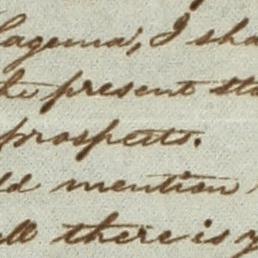 Lagema, I sha
he present sta
prospects.
ld mention
ll there is y